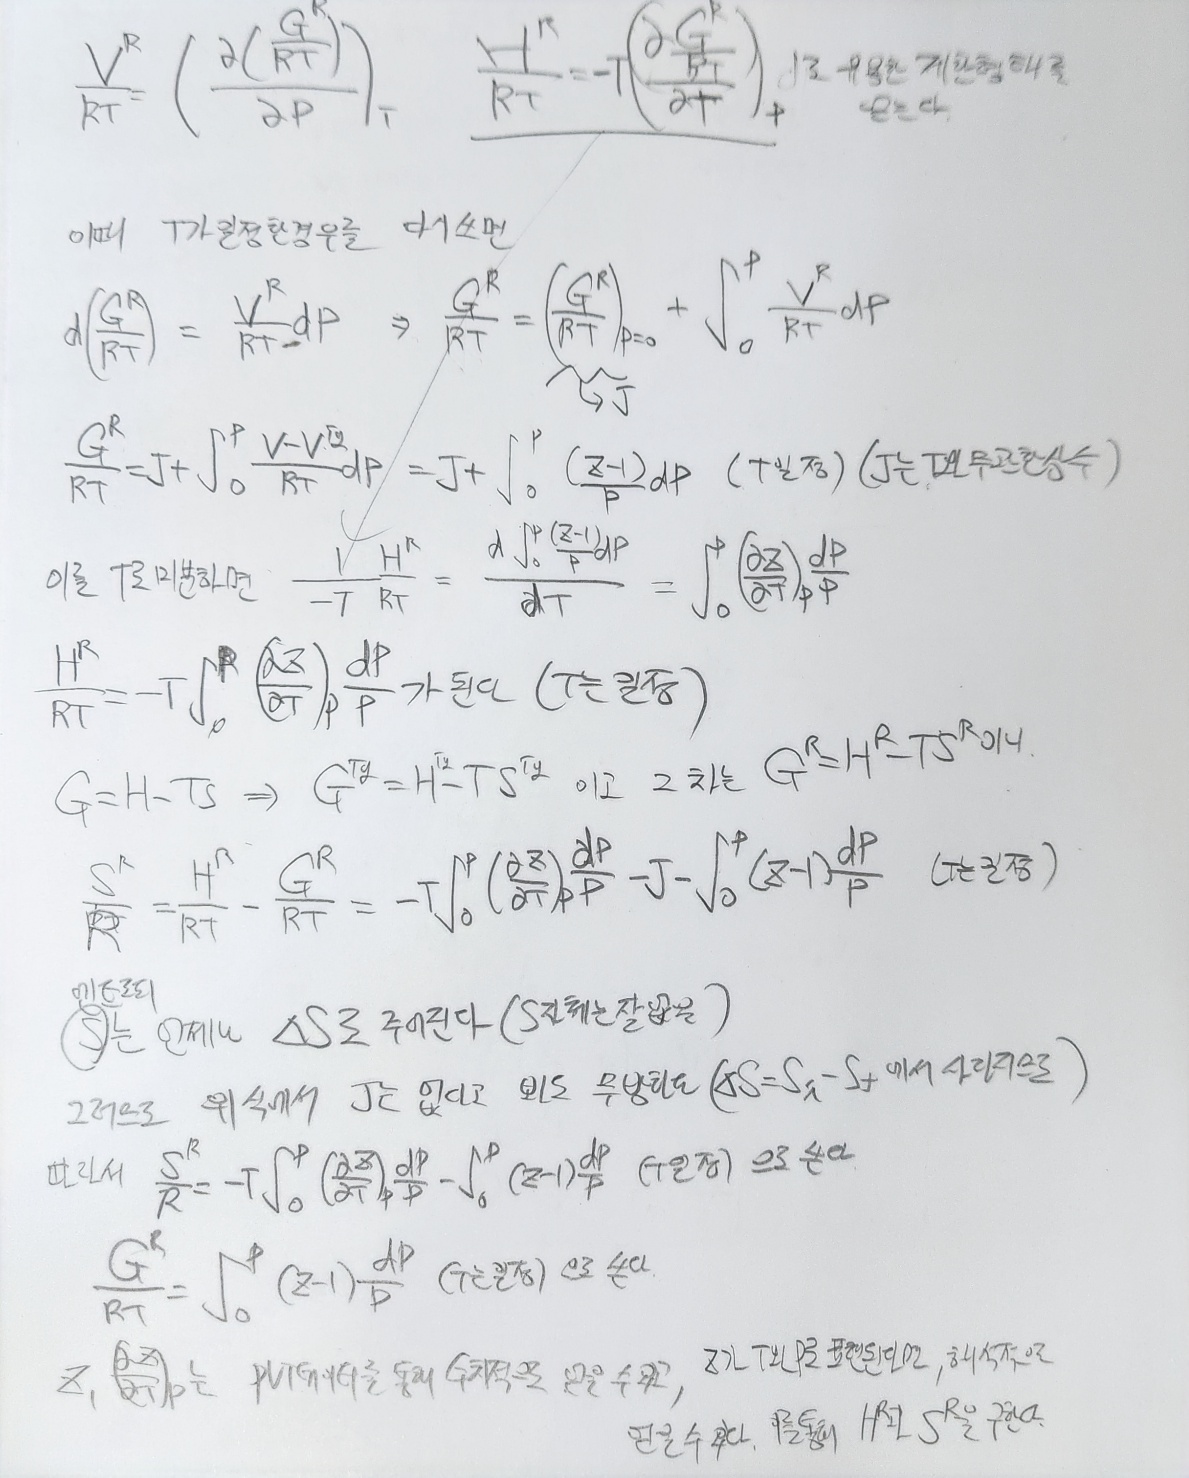 V^R/RT = (∂(G^R/RT)/∂P)_T   H^R/RT = -T(∂(G^R/RT)/∂T)_P 로 유용한 계산형태를
얻는다.
이때 T가 일정한경우를 다시쓰면
d(G^R/RT) = V^R/RT dP ⇒ G^R/RT = (G^R/RT)_{P=0} + ∫_0^P V^R/RT dP
↳ J
G^R/RT = J + ∫_0^P (V-V^{ig})/RT dP = J + ∫_0^P (Z-1)/P dP (T일정) (J는 T와 무관한상수)
이를 T로 미분하면 1/-T H^R/RT = d∫_0^P (Z-1)/P dP / dT = ∫_0^P (∂Z/∂T)_P dP/P
H^R/RT = -T∫_0^P (∂Z/∂T)_P dP/P 가 된다 (T는 일정)
G=H-TS ⇒ G^{ig}=H^{ig}-TS^{ig} 이고 그 차는 G^R=H^R-TS^R 이니.
S^R/R = H^R/RT - G^R/RT = -T∫_0^P (∂Z/∂T)_P dP/P - J - ∫_0^P (Z-1) dP/P (T는 일정)
엔트로피
S는 언제나 ΔS로 주어진다 (S자체는 잘 없음)
그러므로 위 식에서 J는 없다고 봐도 무방하다 (ΔS= 에서 사라지므로)
따라서 S^R/R = -T∫_0^P (∂Z/∂T)_P dP/P - ∫_0^P (Z-1) dP/P (T일정) 으로 쓴다
G^R/RT = ∫_0^P (Z-1) dP/P (T는일정) 으로 쓴다.
Z, (∂Z/∂T)_P 는 PVT데이터를 통해 수치적으로 얻을 수 있고, Z가 T와 P로 표현된다면, 해석적으로
얻을 수 있다. 이를통해 H^R과 S^R을 구한다.